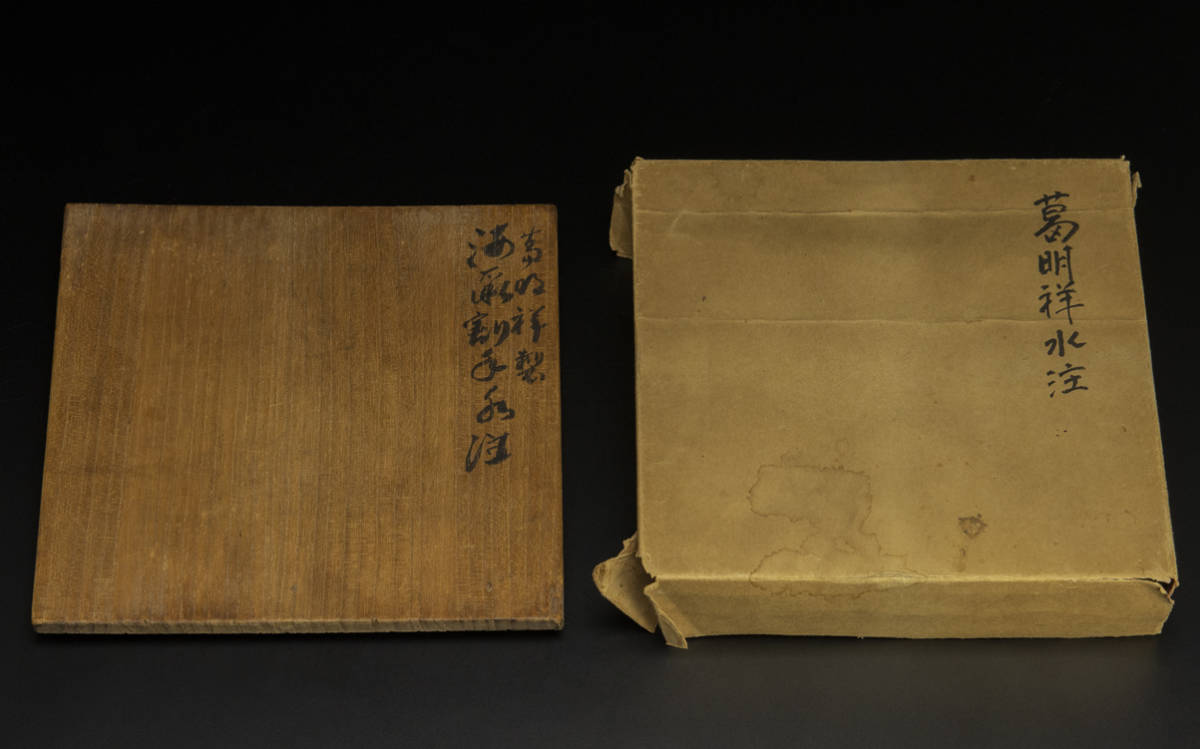 葛明祥製
海割手水注
葛明祥水注